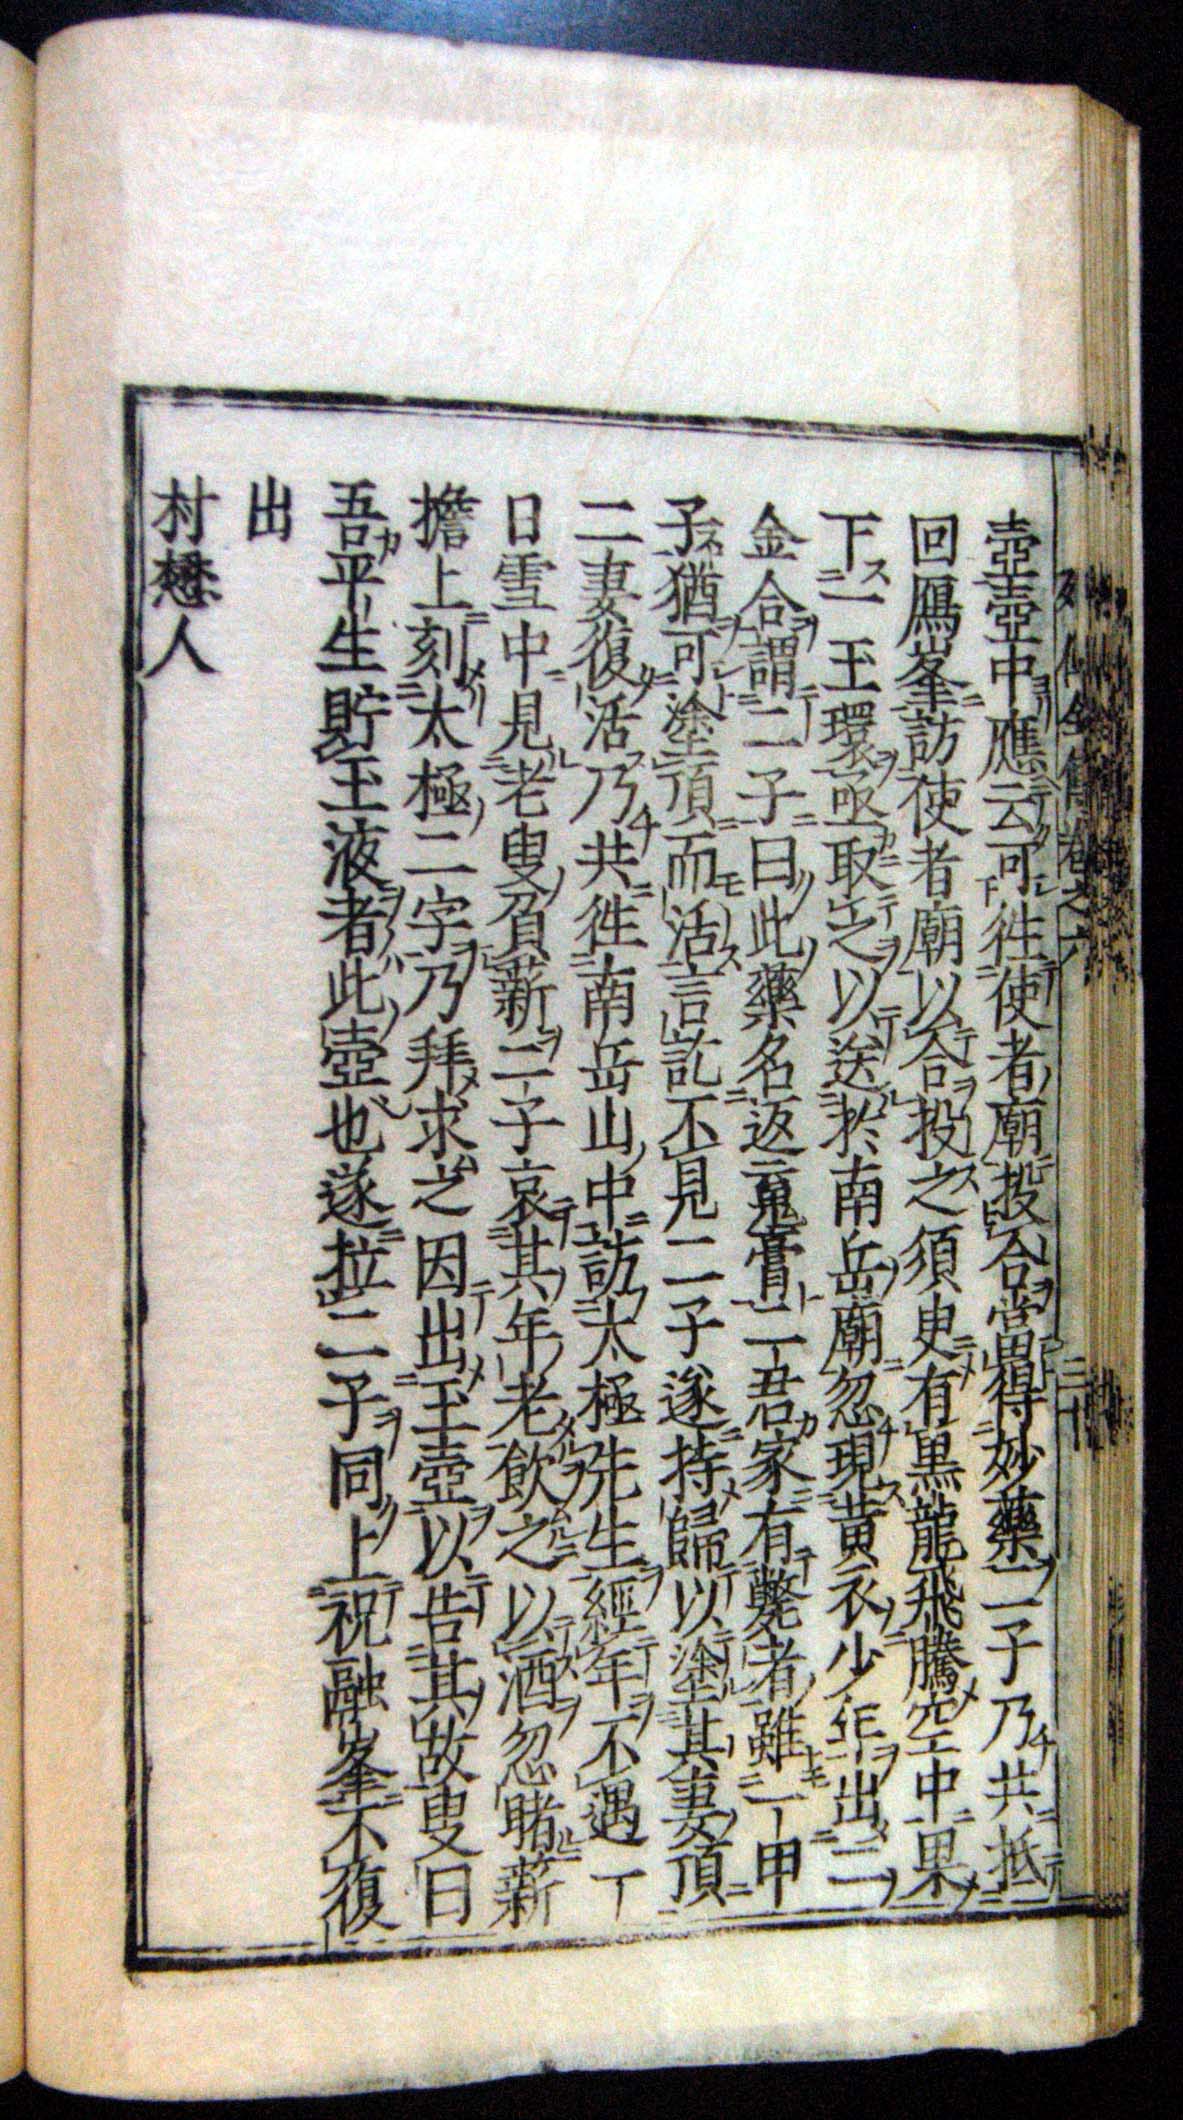 列仙全傳卷之六
壺壺中應云可徃使者廟投合當得妙藥二子乃共抵
回鴈峯訪使者廟以合投之須臾有黒龍飛騰空中果
下一玉環亟取之以送於南岳廟忽現黄衣少年出二
金合謂二子曰此藥名返䰟膏二君家有斃者雖一甲
子猶可塗頂而活言訖不見二子遂持歸以塗其妻頂
二妻復活乃共徃南岳山中訪太極先生經年不遇一
日雪中見老叟負薪二子哀其年老飲之以酒忽睹薪
擔上刻太極二字乃拜求之因出玉壺以告其故叟曰
吾平生貯玉液者此壺也遂拉二子同上祝融峯不復
出
村懋人